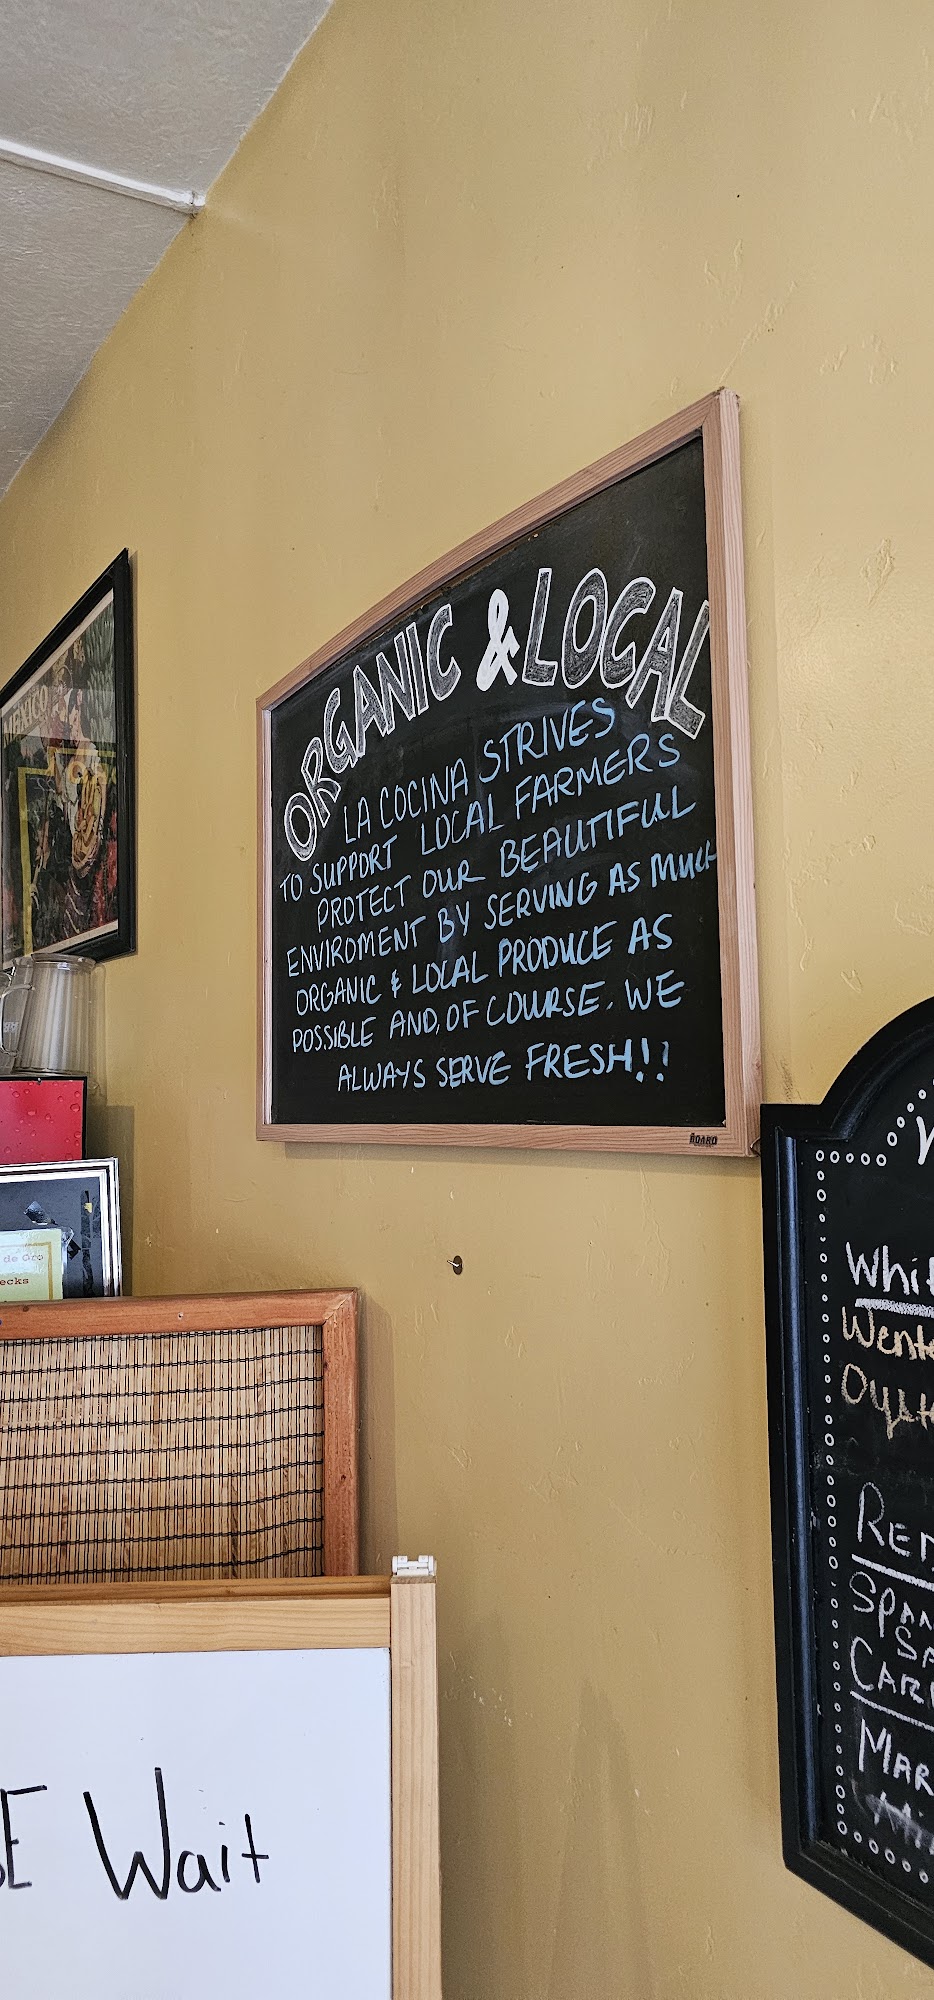 MEXICO
ORGANIC & LOCAL
LA COCINA STRIVES
TO SUPPORT LOCAL FARMERS
PROTECT OUR BEAUTIFUL
ENVIROMENT BY SERVING AS MUCH
ORGANIC & LOCAL PRODUCE AS
POSSIBLE AND, OF COURSE. WE
ALWAYS SERVE FRESH!!
BOARD
de Oro
ecks
SE Wait
Whit
Wente
Oyste
RED
SPAN
SA
CAR
MAR